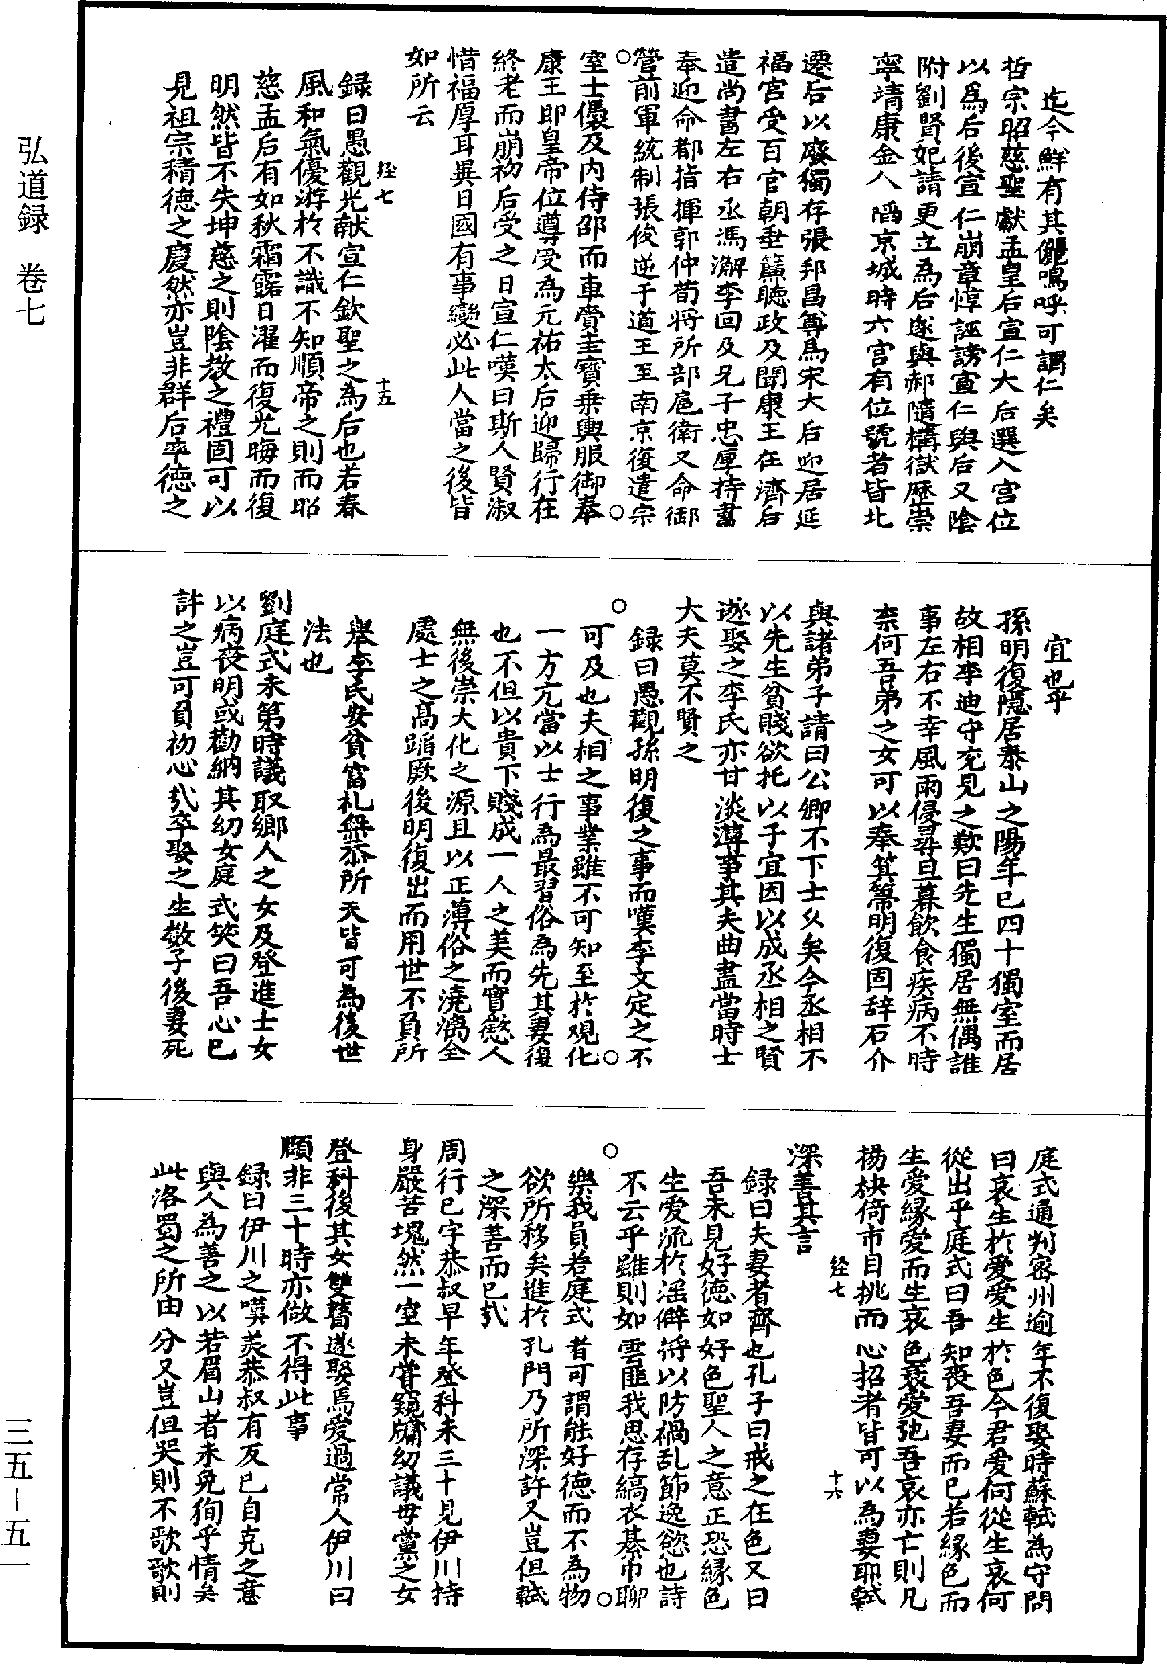 弘道録 卷七
三五－五一
迄今鮮有其儷嗚呼可謂仁矣
哲宗昭慈聖獻孟皇后宣仁大后選入宮位
以為后後宣仁崩章惇誣謗宣仁與后又陰
附劉賢妃請更立為后遂與郝隨構獄歷崇
寧靖康金人陷京城時六宮有位號者皆北
遷后以廢獨存張邦昌尊為宋大后迎居延
福宮受百官朝垂簾聽政及聞康王在濟后
遣尚書左右丞馮澥李回及兄子忠厚持書
奉迎命都指揮郭仲荀將所部扈衛又命御
營前軍統制張俊逆于道王至南京復遣宗
室士㒟及内侍邵而車賫圭寶乗輿服御奉
康王即皇帝位尊受為元祐太后迎歸行在
終老而崩初后受之日宣仁嘆曰斯人賢淑
惜福厚耳異日國有事變必此人當之後皆
如所云
経七
十五
録曰愚觀光献宣仁欽聖之為后也若春
風和氣優游於不識不知順帝之則而昭
慈孟后有如秋霜露日濯而復光晦而復
明然皆不失坤慈之則陰教之禮固可以
見祖宗積德之慶然亦豈非群后率德之
宜也乎
孫明復隱居泰山之陽年已四十獨室而居
故相李迪守兗見之歎曰先生獨居無偶誰
事左右不幸風雨侵尋旦暮飲食疾病不時
柰何吾弟之女可以奉箕箒明復固辞石介
與諸弟子請曰公卿不下士久矣今丞相不
以先生貧賤欲托以子宜因以成丞相之賢
遂娶之李氏亦甘淡薄事其夫曲盡當時士
大夫莫不賢之
録曰愚觀孫明復之事而嘆李文定之不
可及也夫相之事業雖不可知至於观化
一方亢當以士行為最習俗為先其妻復
也不但以貴下賤成一人之美而實慰人
無後崇大化之源且以正薄俗之澆漓全
處士之高蹈厥後明復出而用世不負所
舉李氏安貧富札樂恭所天皆可為後世
法也
劉庭式未第時議取鄉人之女及登進士女
以病䘮明或勸納其幼女庭式笑曰吾心已
許之豈可負初心㢤卒娶之生數子後妻死
庭式通判密州逾年不復娶時蘇軾為守問
曰哀生於愛愛生於色今君愛何從生哀何
從出乎庭式曰吾知䘮吾妻而已若縁色而
生愛縁愛而生哀色衰愛弛吾哀亦亡則凡
揚袂倚市目挑而心招者皆可以為妻耶軾
深善其言
経七
十六
録曰夫妻者齊也孔子曰戒之在色又曰
吾未見好德如好色聖人之意正恐縁色
生愛流於滛僻將以防禍乱節逸慾也詩
不云乎雖則如雲匪我思存縞衣綦巾聊
樂我員若庭式者可謂能好德而不為物
欲所移矣進於孔門乃所深許又豈但軾
之深善而已㢤
周行已字恭叔早年登科未三十見伊川持
身嚴苦塊然一室未嘗窺牖幼議母黨之女
登科後其女雙瞽遂娶焉愛過常人伊川曰
頤非三十時亦做不得此事
録曰伊川之嘆羙恭叔有反已自克之意
與人為善之以若眉山者未免狥乎情矣
此洛蜀之所由分又豈但哭則不歌歌則